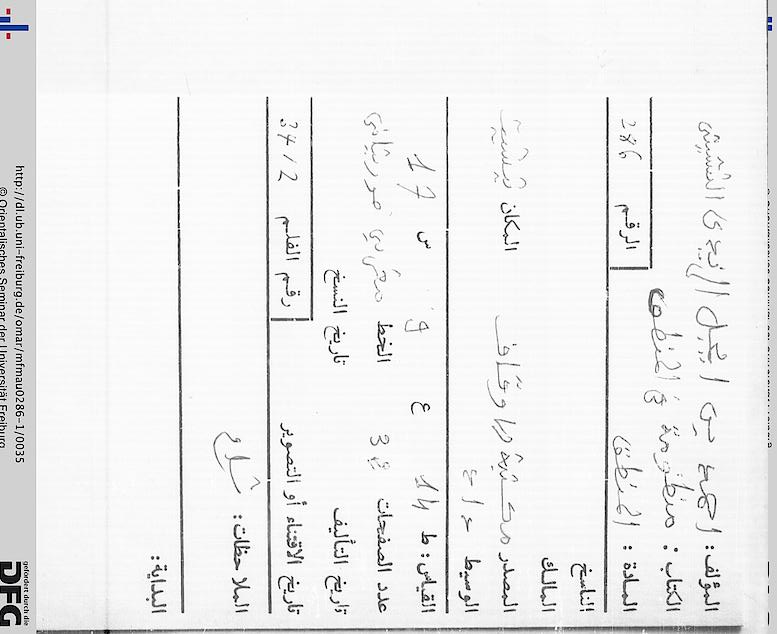 المؤلف: احمد بن اجبل الزيدى التشيتى
الكتاب: منظومة في المنطق
المادة: المنطق الرقم 286
الناسخ
المالك
المصدر مكتبة الاوقاف المكان تيشيت
الوسيط
القياس: ط 14 ع 9 س 17
عدد الصفحات الخط مغربي موريتاني
تاريخ التأليف تاريخ النسخ
تاريخ الاقتناء أو التصوير رقم الفلم 34/2
الملاحظات:
البداية:
http://dl.ub.uni-freiburg.de/omar/mfmau0286-1/0035
© Orientalisches Seminar der Universität Freiburg
gefördert durch die
DFG